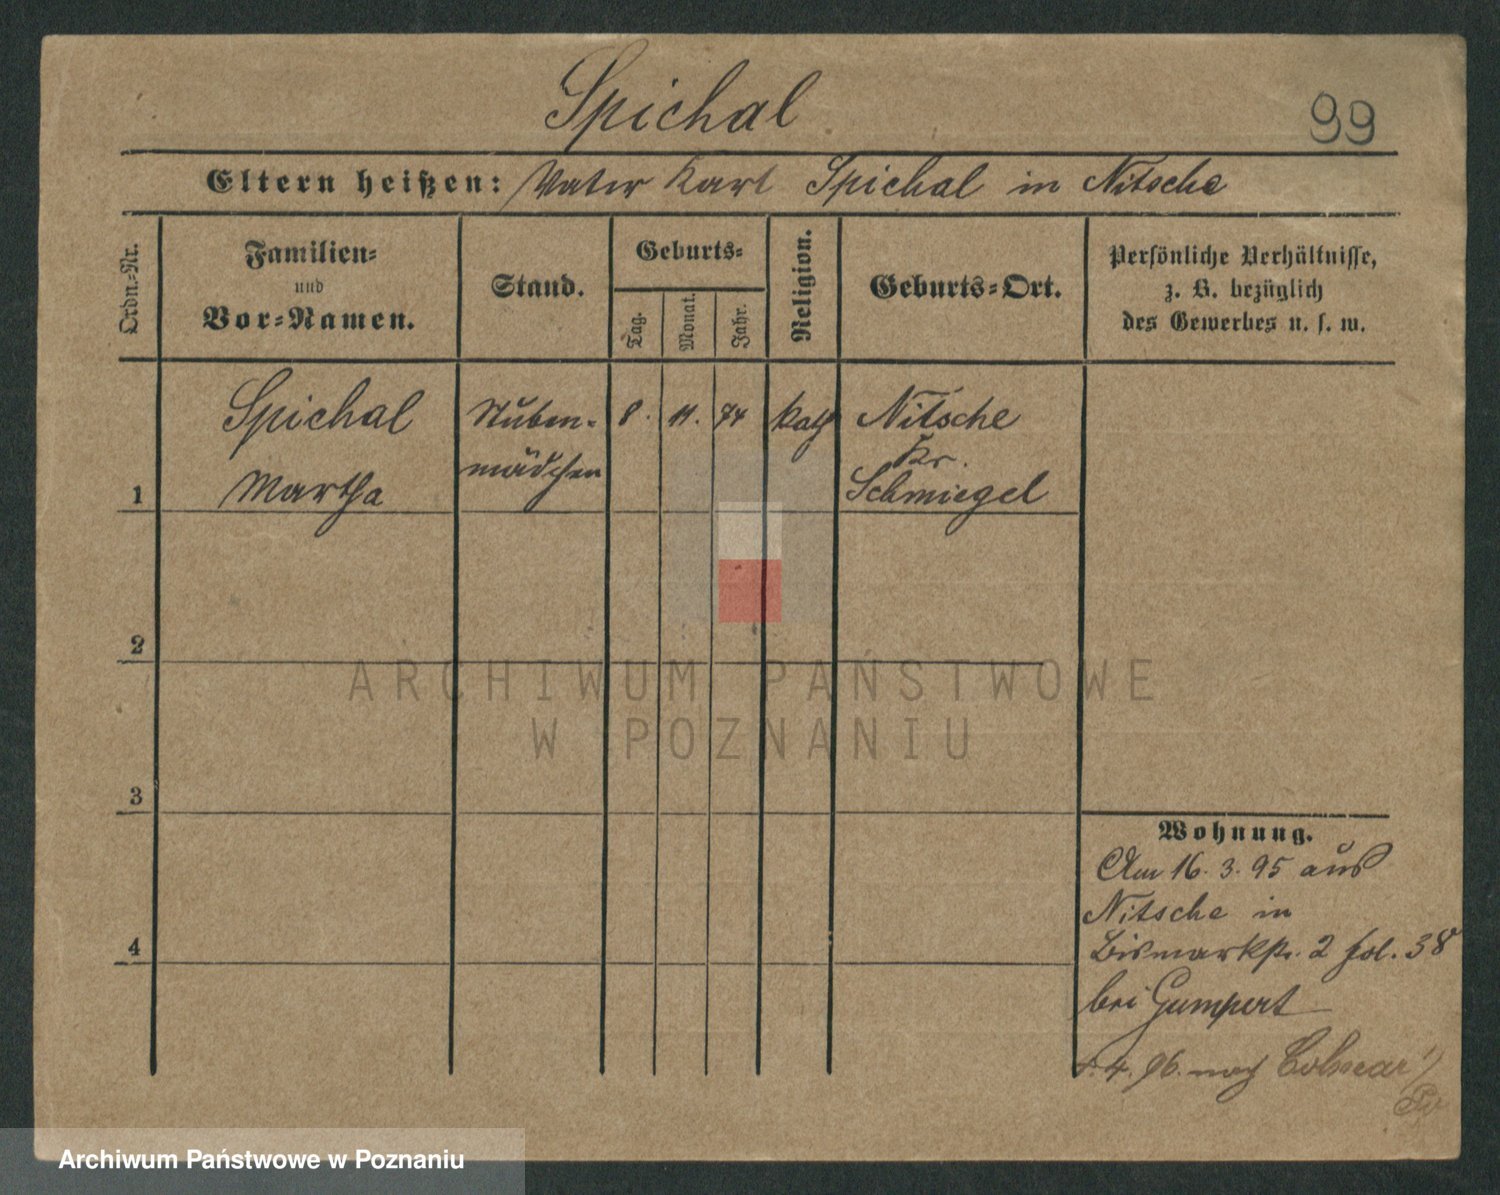 Spichal
99
Eltern heißen: Vater Karl Spichal in Nitsche
Ordn.-Nr.
Familien-
und
Vor-Namen.
Stand.
Geburts-
Tag.
Monat.
Jahr.
Religion.
Geburts-Ort.
Persönliche Verhältnisse,
z. B. bezüglich
des Gewerbes u. s. w.
1
Spichal
Martha
Stuben-
mädchen
8.
11.
74
kath
Nitsche
Kr.
Schmiegel
2
3
4
Wohnung.
Am 16. 3. 95 aus
Nitsche in
Bismarkstr. 2 fol. 38
bei Gumpert
4. 96. nach
ARCHIWUM PAŃSTWOWE
W POZNANIU
Archiwum Państwowe w Poznaniu